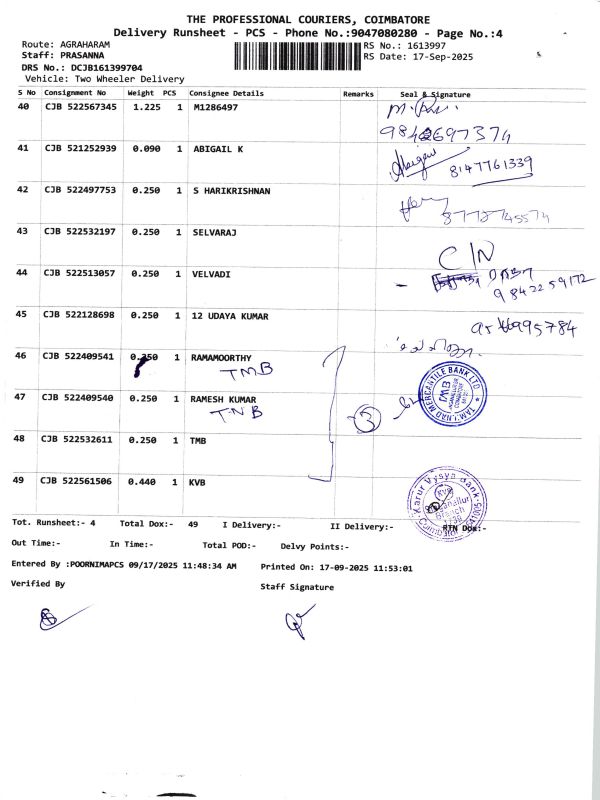 THE PROFESSIONAL COURIERS, COIMBATORE
Delivery Runsheet - PCS - Phone No.:9047080280 - Page No.:4
Route: AGRAHARAM
Staff: PRASANNA
DRS No.: DCJB161399704
Vehicle: Two Wheeler Delivery
RS No.: 1613997
RS Date: 17-Sep-2025
S No Consignment No Weight PCS Consignee Details Remarks Seal & Signature
40 CJB 522567345 1.225 1 M1286497
41 CJB 521252939 0.090 1 ABIGAIL K
8147761339
42 CJB 522497753 0.250 1 S HARIKRISHNAN
43 CJB 522532197 0.250 1 SELVARAJ
C/N
44 CJB 522513057 0.250 1 VELVADI
9842259172
45 CJB 522128698 0.250 1 12 UDAYA KUMAR
46 CJB 522409541 0.250 1 RAMAMOORTHY
TMB
TAMILNAD MERCANTILE BANK LTD
TMB
47 CJB 522409540 0.250 1 RAMESH KUMAR
TNB
3
48 CJB 522532611 0.250 1 TMB
49 CJB 522561506 0.440 1 KVB
Karur Vysya Bank
KVB
Branch
Tot. Runsheet:- 4 Total Dox:- 49 I Delivery:- II Delivery:- RTN Dox:-
Out Time:- In Time:- Total POD:- Delvy Points:-
Entered By :POORNIMAPCS 09/17/2025 11:48:34 AM Printed On: 17-09-2025 11:53:01
Verified By Staff Signature